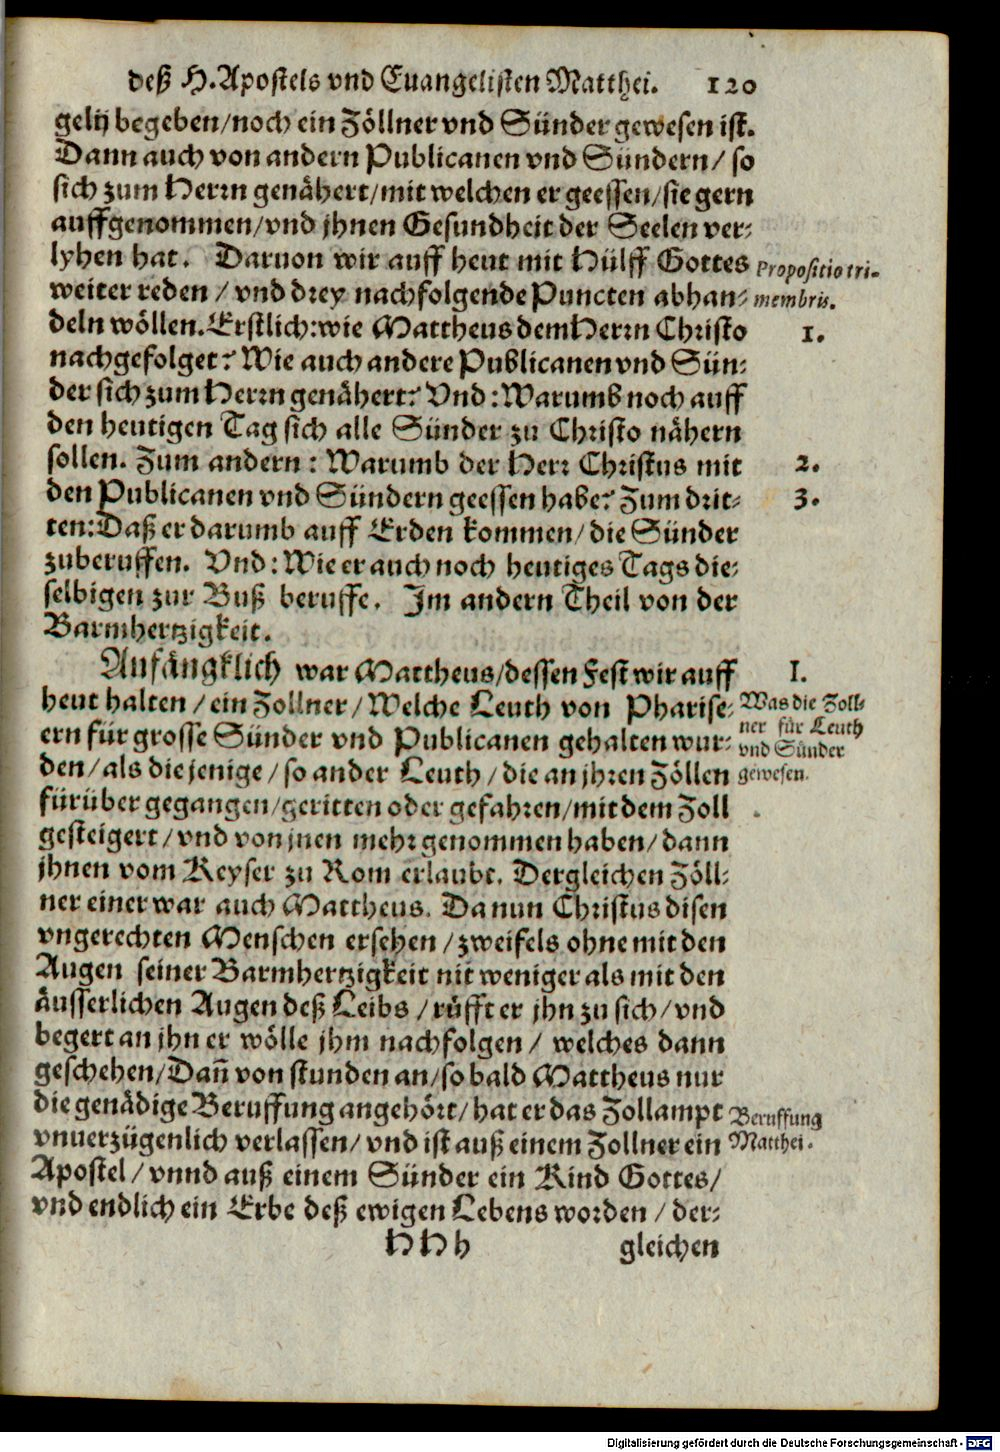 deß H. Apostels vnd Euangelisten Matthei. 120
gelij begeben/noch ein Zöllner vnd Sünder gewesen ist.
Dann auch von andern Publicanen vnd Sündern/ so
sich zum Herrn genähert/mit welchen er geessen/sie gern
auffgenommen/vnd jhnen Gesundheit der Seelen ver-
lyhen hat. Daruon wir auff heut mit Hülff Gottes
weiter reden / vnd drey nachfolgende Puncten abhan-
deln wöllen. Erstlich: wie Mattheus dem Herrn Christo
nachgefolget? Wie auch andere Publicanen vnd Sün-
der sich zum Herrn genähert? Vnd: Warumb noch auff
den heutigen Tag sich alle Sünder zu Christo nähern
sollen. Zum andern: Warumb der Herr Christus mit
den Publicanen vnd Sündern geessen habe? Zum drit-
ten: Daß er darumb auff Erden kommen/ die Sünder
zuberuffen. Vnd: Wie er auch noch heutiges Tags die-
selbigen zur Buß beruffe. Im andern Theil von der
Barmhertzigkeit.
Propositio tri-
membris.
1.
2.
3.
Anfängklich war Mattheus/dessen Fest wir auff
heut halten / ein Zollner / Welche Leuth von Pharise-
ern für grosse Sünder vnd Publicanen gehalten wur-
den/ als die jenige / so ander Leuth / die an jhren Zöllen
fürüber gegangen/geritten oder gefahren/mit dem Zoll
gesteigert / vnd von jnen mehr genommen haben/ dann
jhnen vom Keyser zu Rom erlaubt. Dergleichen Zöll-
ner einer war auch Mattheus. Da nun Christus disen
vngerechten Menschen ersehen / zweifels ohne mit den
Augen seiner Barmhertzigkeit nit weniger als mit den
äusserlichen Augen deß Leibs / rüfft er jhn zu sich/ vnd
begert an jhn er wölle jhm nachfolgen / welches dann
geschehen/Dañ von stunden an/so bald Mattheus nur
die genädige Beruffung angehört/ hat er das Zollampt
vnuerzügenlich verlassen/ vnd ist auß einem Zollner ein
Apostel / vnnd auß einem Sünder ein Kind Gottes/
vnd endlich ein Erbe deß ewigen Lebens worden / der-
I.
Was die Zoll-
ner für Leuth
vnd Sünder
gewesen.
Beruffung
Matthei.
HHh gleichen
Digitalisierung gefördert durch die Deutsche Forschungsgemeinschaft - DFG